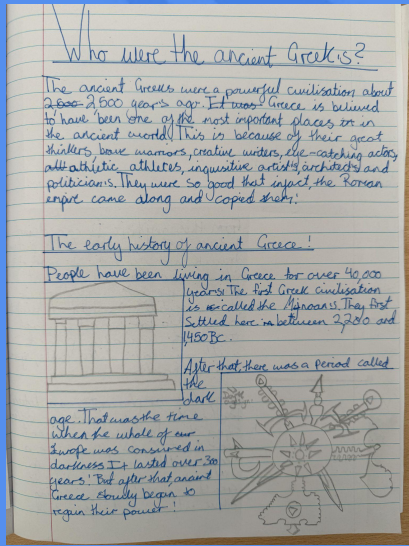 Who were the ancient Greeks?
The ancient Greeks were a powerful civilisation about
2,500 years ago. Greece is believed
to have been one of the most important places in
the ancient world. This is because of their great
thinkers, brave warriors, creative writers, eye-catching actors,
athletic athletes, inquisitive artists, architects and
politicians. They were so good that infact, the Roman
empire came along and copied them!
The early history of ancient Greece!
People have been living in Greece for over 40,000
years! The first Greek civilisation
is called the Minoans. They first
settled here in between 2,200 and
1,450 BC.
After that, there was a period called
the
dark
age. That was the time
when the whole of
Europe was consumed in
darkness. It lasted over 300
years! But after that, ancient
Greece slowly began to
regain their power!